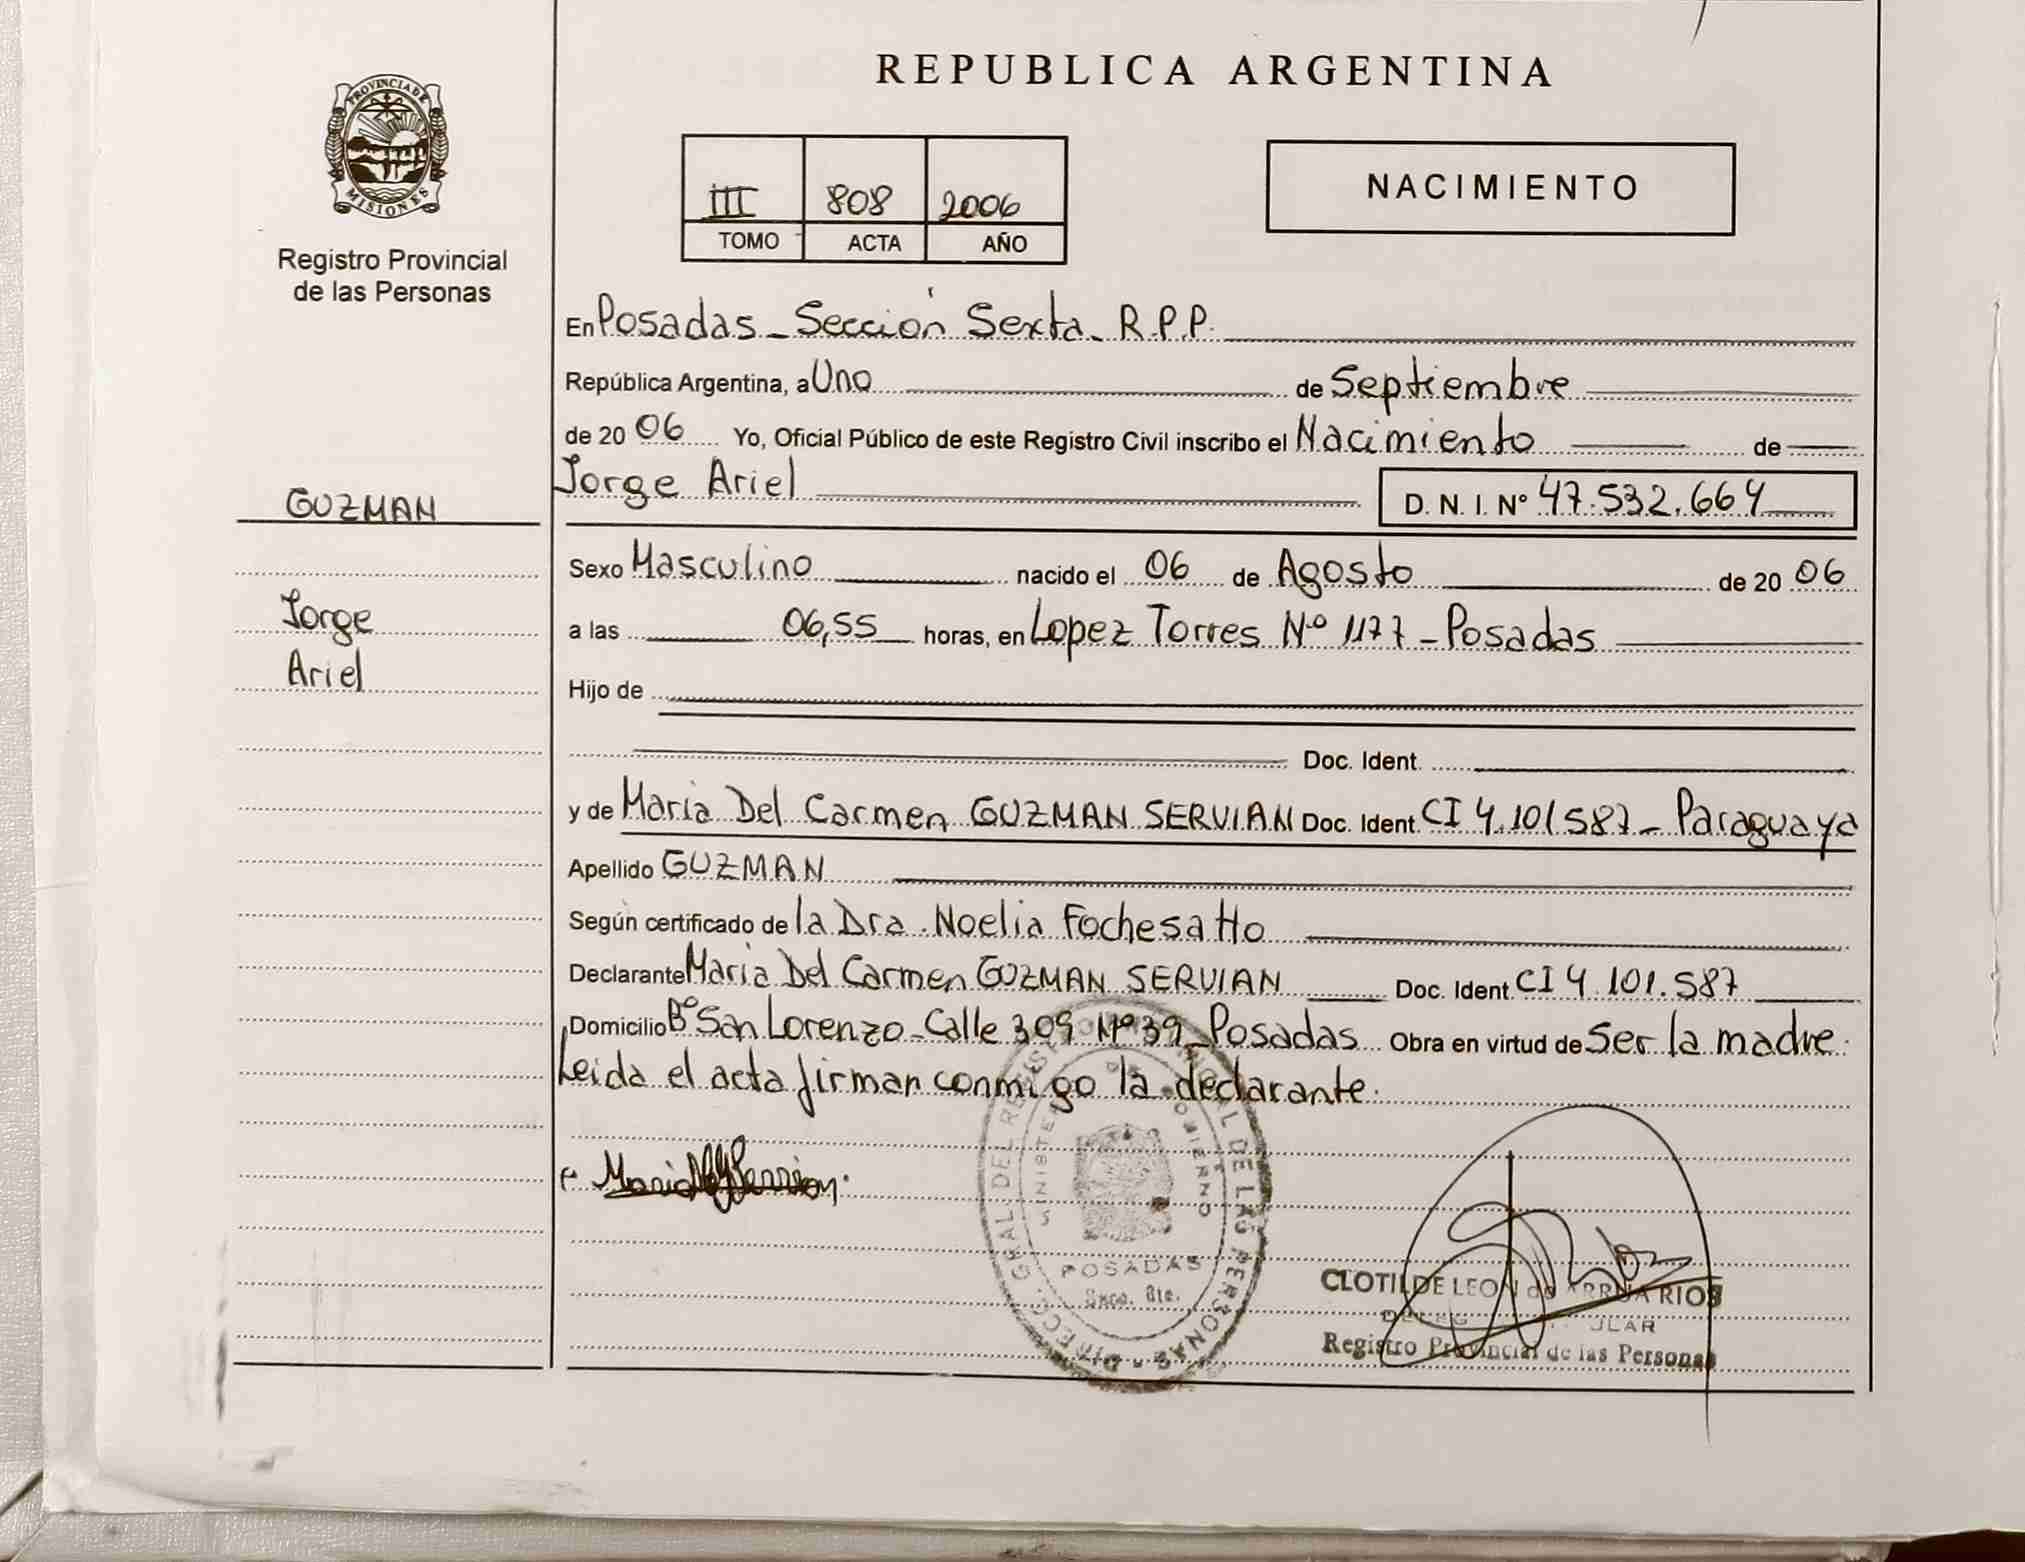 PROVINCIA DE
MISIONES
Registro Provincial
de las Personas
GUZMAN
Jorge
Ariel
REPUBLICA ARGENTINA
III 808 2006
TOMO ACTA AÑO
NACIMIENTO
En Posadas - Sección Sexta - R.P.P.
República Argentina, a Uno de Septiembre
de 20 06 Yo, Oficial Público de este Registro Civil inscribo el Nacimiento de
Jorge Ariel D. N. I. Nº 47.532.664
Sexo Masculino nacido el 06 de Agosto de 20 06
a las 06,55 horas, en Lopez Torres Nº 1177 - Posadas
Hijo de
Doc. Ident.
y de Maria Del Carmen GUZMAN SERVIAN Doc. Ident. CI 4.101.587 - Paraguaya
Apellido GUZMAN
Según certificado de la Dra. Noelia Fochesatto
Declarante Maria Del Carmen GUZMAN SERVIAN Doc. Ident. CI 4.101.587
Domicilio Bº San Lorenzo - Calle 309 Nº 39 - Posadas Obra en virtud de Ser la madre.
Leida el acta firman conmigo la declarante.
POSADAS
CLOTILDE LEON de RIOS
Registro Provincial de las Personas